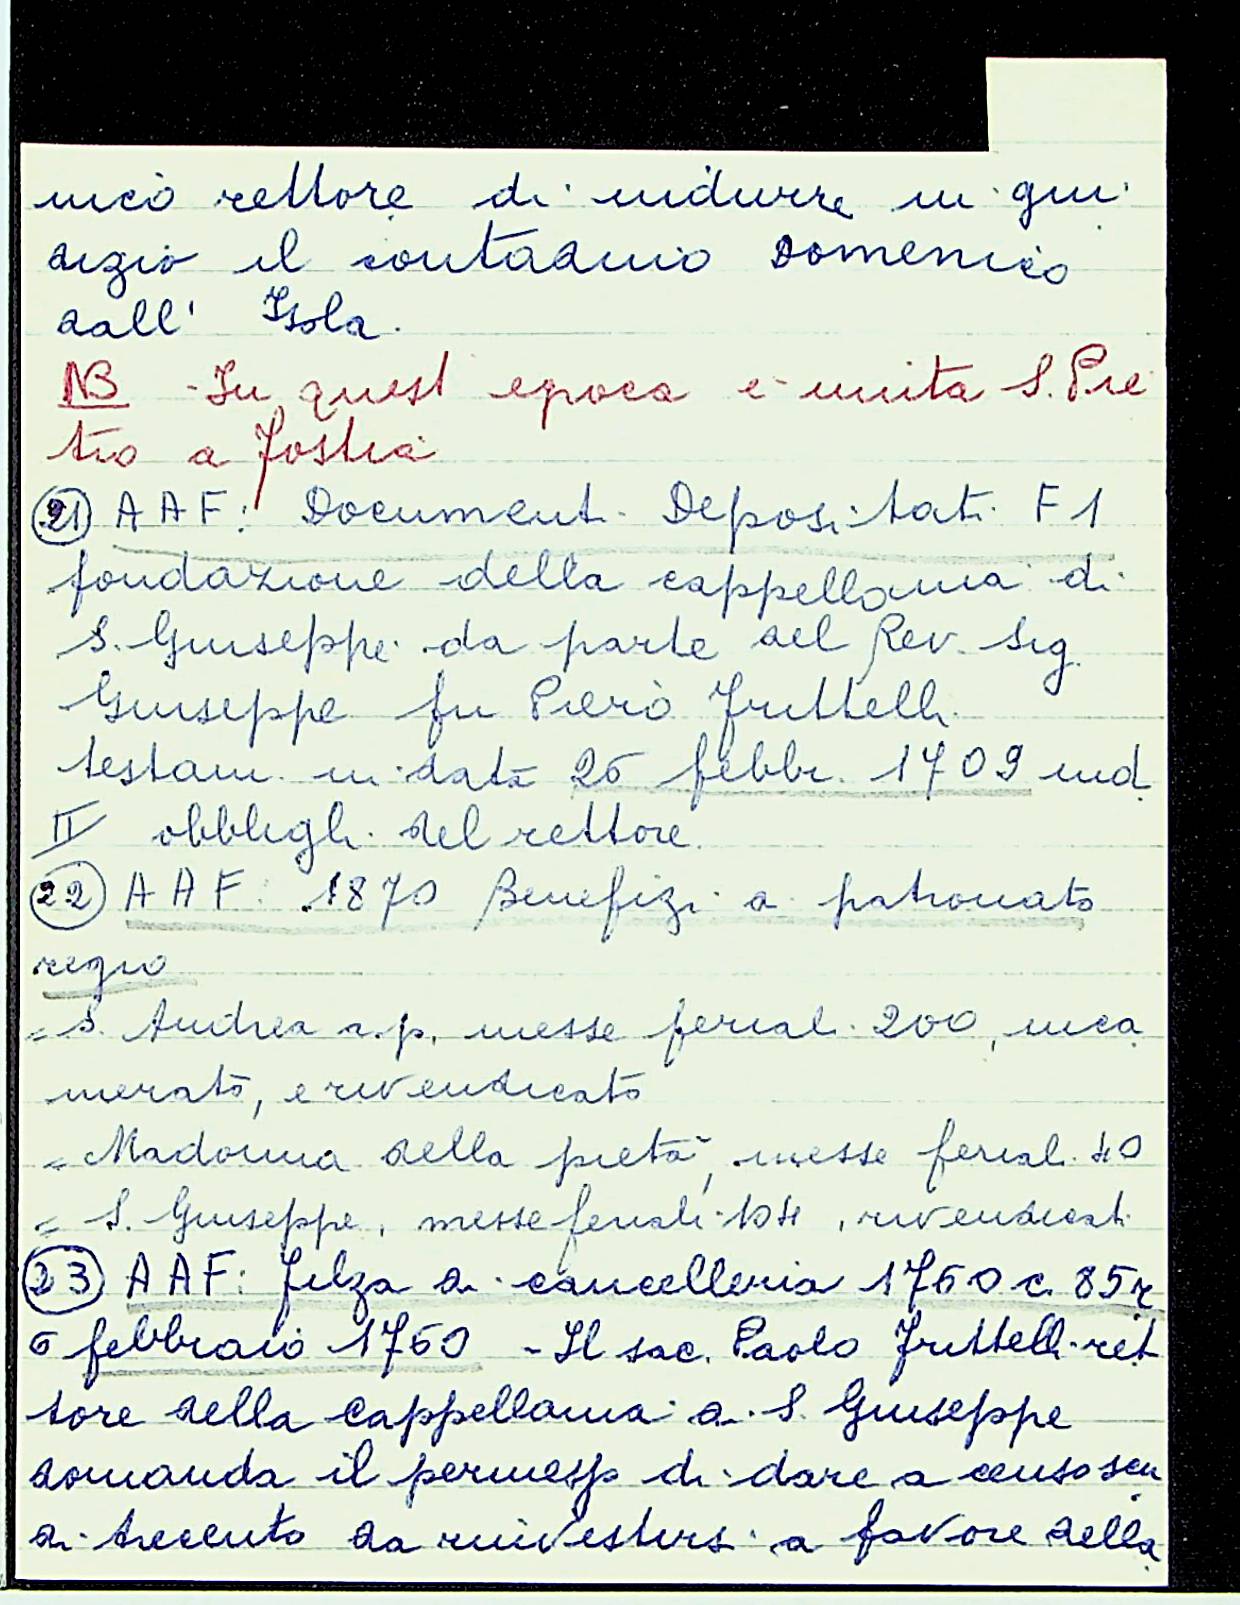 nico rettore di indurre in giu
dizio il contadino Domenico
dall' Isola.
NB - In quest epoca e unita S. Pie
tro a Jostra
21 AAF: Documenti Depositati F1
fondazione della cappellania di
S. Giuseppe da parte del Rev. Sig.
Giuseppe fu Piero Fruttelli
testam. in data 26 febbr. 1709 ind
II obblighi del rettore.
22 AAF: 1870 Benefizi a patronato
regio
= S. Andrea a.p. messe feriali 200, inca
merato, e rivendicato
= Madonna della pietà, messe feriali 40
= S. Giuseppe, messe feriali 104, rivendicati
23 AAF: Filza di cancelleria 1760 c. 85r
6 febbraio 1760 - Il sac. Paolo Fruttelli ret
tore della cappellania di S. Giuseppe
domanda il permesso di dare a censo scu
di trecento da rinvestirsi a favore della